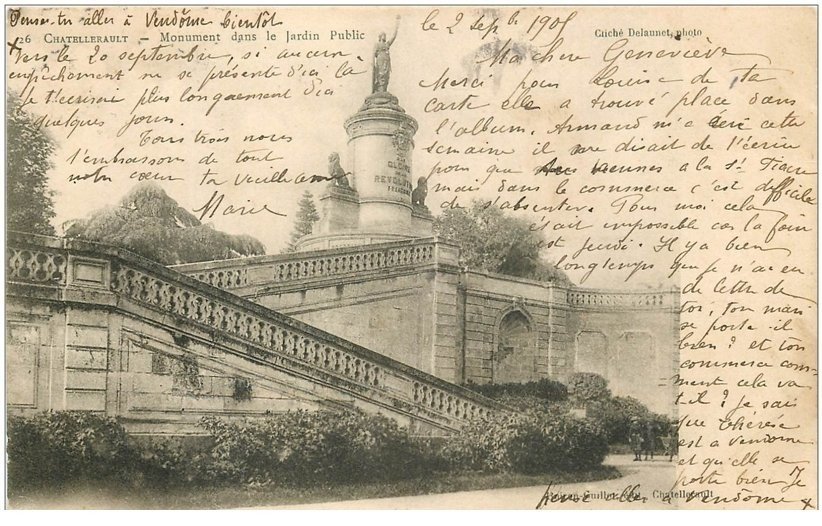 le 2 sepbre 1905
Ma chère Geneviève
Merci pour Louise de ta
carte elle a trouvé place dans
l'album. Armand m'a écri cette
semaine il me disait de l'écrire
pour que vennes a la St Fiacre
mais dans le commerce c'est difficile
de s'absenter. Pour moi cela
était impossible car la foire
est jeudi. Il y a bien
longtemps que je n'ai eu
de lettre de
toi, ton mari
se porte il
bien? et ton
commerce com-
ment cela va
t-il? Je sais
que Thérèse
est a Vendome
et qu'elle se
porte bien Je
pense aller a Vendôme x
Penses-tu aller à Vendôme bientôt
26 CHATELLERAULT – Monument dans le Jardin Public
Cliché Delaunet, photo
x vers le 20 septembre, si aucun
empêchement ne se présente d'ici là
Je t'écrirai plus longuement d'ici
quelques jours.
Tous trois nous
t'embrassons de tout
notre cœur ta vieille amie
Marie
GLOIRE
REVOLUTION
FRANÇAISE
Guiller, édit. Chatellerault